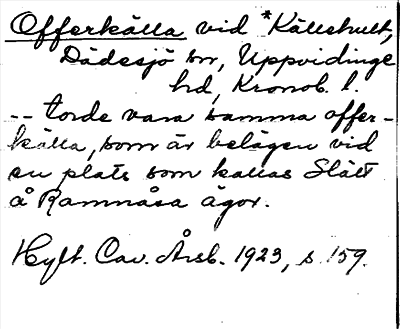 Offerkälla vid *Källshult,
Dädesjö sn, Uppvidinge
hd, Kronob. l.
-- torde vara samma offer-
källa, som är belägen vid
en plats som kallas Slätt
å Ramnåsa ägor.
Hylt. Cav. Årsb. 1923, s. 159.